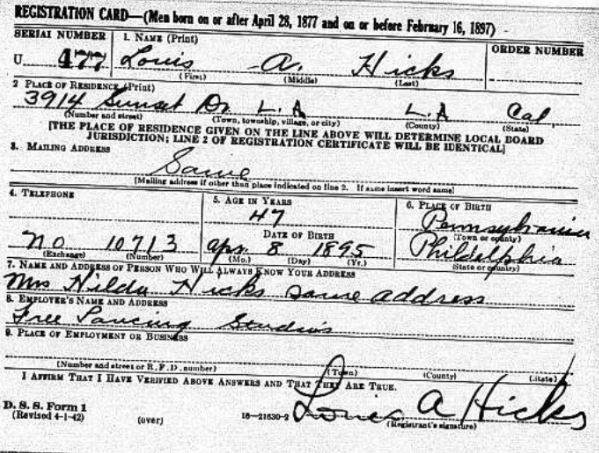 REGISTRATION CARD—(Men born on or after April 28, 1877 and on or before February 16, 1897)
SERIAL NUMBER 1. NAME (Print) ORDER NUMBER
U 477 Louis A. Hicks
(First) (Middle) (Last)
2 PLACE OF RESIDENCE (Print)
3914 Sunset Dr L.A L.A Cal
(Number and street) (Town, township, village, or city) (County) (State)
[THE PLACE OF RESIDENCE GIVEN ON THE LINE ABOVE WILL DETERMINE LOCAL BOARD
JURISDICTION; LINE 2 OF REGISTRATION CERTIFICATE WILL BE IDENTICAL]
3. MAILING ADDRESS
Same
[Mailing address if other than place indicated on line 2. If same insert word same]
4. TELEPHONE 5. AGE IN YEARS 6. PLACE OF BIRTH
47 Pennsylvania
DATE OF BIRTH (Town or county)
no 10713 apr. 8 1895 Phildelphia
(Exchange) (Number) (Mo.) (Day) (Yr.) (State or country)
7. NAME AND ADDRESS OF PERSON WHO WILL ALWAYS KNOW YOUR ADDRESS
Mrs Hilda Hicks same address
8. EMPLOYER'S NAME AND ADDRESS
Free Lancing Studios
9. PLACE OF EMPLOYMENT OR BUSINESS
(Number and street or R. F. D. number) (Town) (County) (State)
I AFFIRM THAT I HAVE VERIFIED ABOVE ANSWERS AND THAT THEY ARE TRUE.
D. S. S. Form 1 Louis A Hicks
(Revised 4-1-42) (over) 16—21630-2 (Registrant's signature)